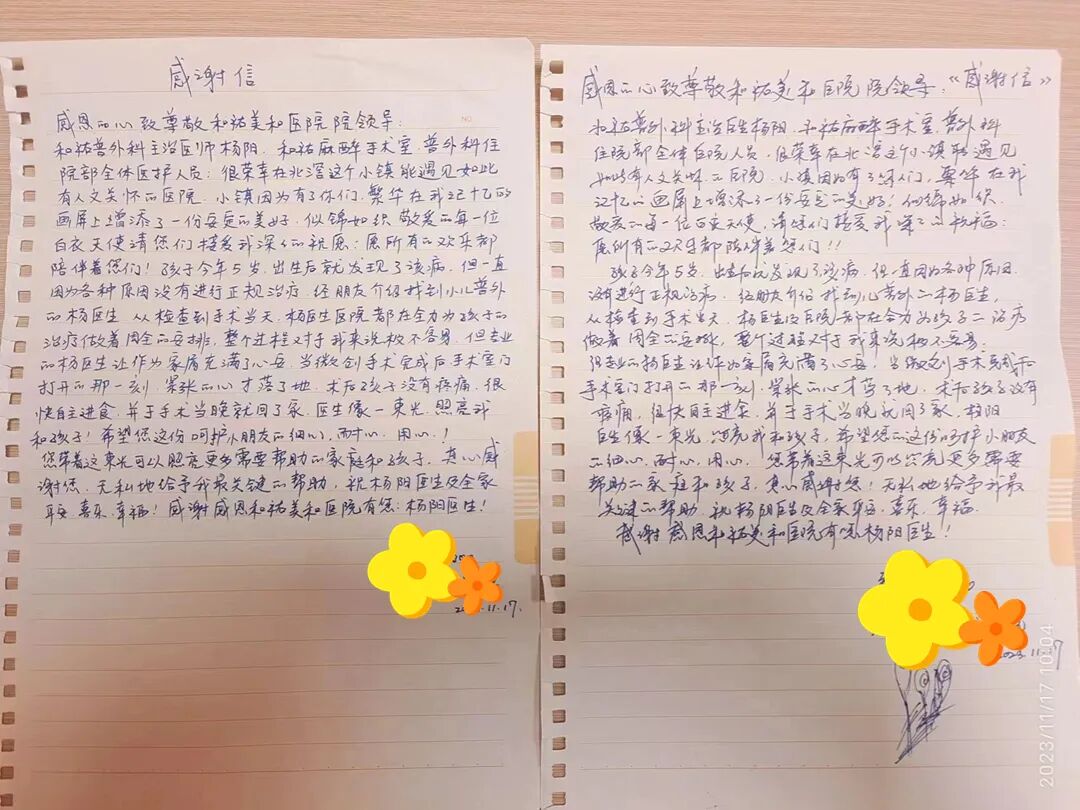 感谢信
感恩的心致尊敬和祐美和医院院领导:
和祐普外科主治医师杨阳、和祐麻醉手术室、普外科住
院部全体医护人员:很荣幸在北滘这个小镇能遇见如此
有人文关怀的医院、小镇因为有了你们、繁华在我记忆的
画屏上增添了一份安定的美好、似锦如织、敬爱的每一位
白衣天使请您们接受我深深的祝愿:愿所有的欢乐都
陪伴着您们!孩子今年5岁、出生后就发现了该病、但一直
因为各种原因没有进行正规治疗、经朋友介绍找到小儿普外
的杨医生、从检查到手术当天、杨医生医院都在全力为孩子的
治疗做着周全的安排、整个过程对于我来说极不容易、但专业
的杨医生让作为家属充满了心安、当微创手术完成后手术室门
打开的那一刻、紧张的心才落了地、术后孩子没有疼痛、很
快自主进食、并于手术当晚就回了家、医生像一束光、照亮我
和孩子!希望您这份呵护小朋友的细心、耐心、用心!
您带着这束光可以照亮更多需要帮助的家庭和孩子、真心感
谢您、无私地给予我最关键的帮助、祝杨阳医生及全家
平安、喜乐、幸福!感谢感恩和祐美和医院有您:杨阳医生!
11.17.
感恩的心致尊敬和祐美和医院院领导:《感谢信》
和祐普外科主治医生杨阳、和祐麻醉手术室、普外科
住院部全体医院人员、很荣幸在北滘这个小镇能遇见
如此有人文关怀的医院、小镇因为有了你们、繁华在我
记忆的画屏上增添了一份安定的美好!似锦如织、
敬爱的每一位白衣天使、请您们接受我深深的祝福:
愿所有的欢乐都陪伴着您们!!
孩子今年5岁、出生后就发现了该病、但一直因为各种原因
没有进行正规治病、经朋友介绍找到小儿普外的杨医生、
从检查到手术当天、杨医生及医院都在全力为孩子的治病
做着周全的安排、整个过程对于我来说极不容易、
但专业的杨医生让作为家属充满了心安、当微创手术完成后
手术室门打开的那一刻、紧张的心才落了地、术后孩子没有
疼痛、很快自主进食、并于手术当晚就回了家、杨阳
医生像一束光、照亮我和孩子、希望您的这份呵护小朋友
的细心、耐心、用心、您带着这束光可以照亮更多需要
帮助的家庭和孩子、真心感谢您!无私地给予我最
关键的帮助、祝杨阳医生及全家平安、喜乐、幸福、
感谢感恩和祐美和医院有您杨阳医生!
2023.11.17
2023/11/17 10:04